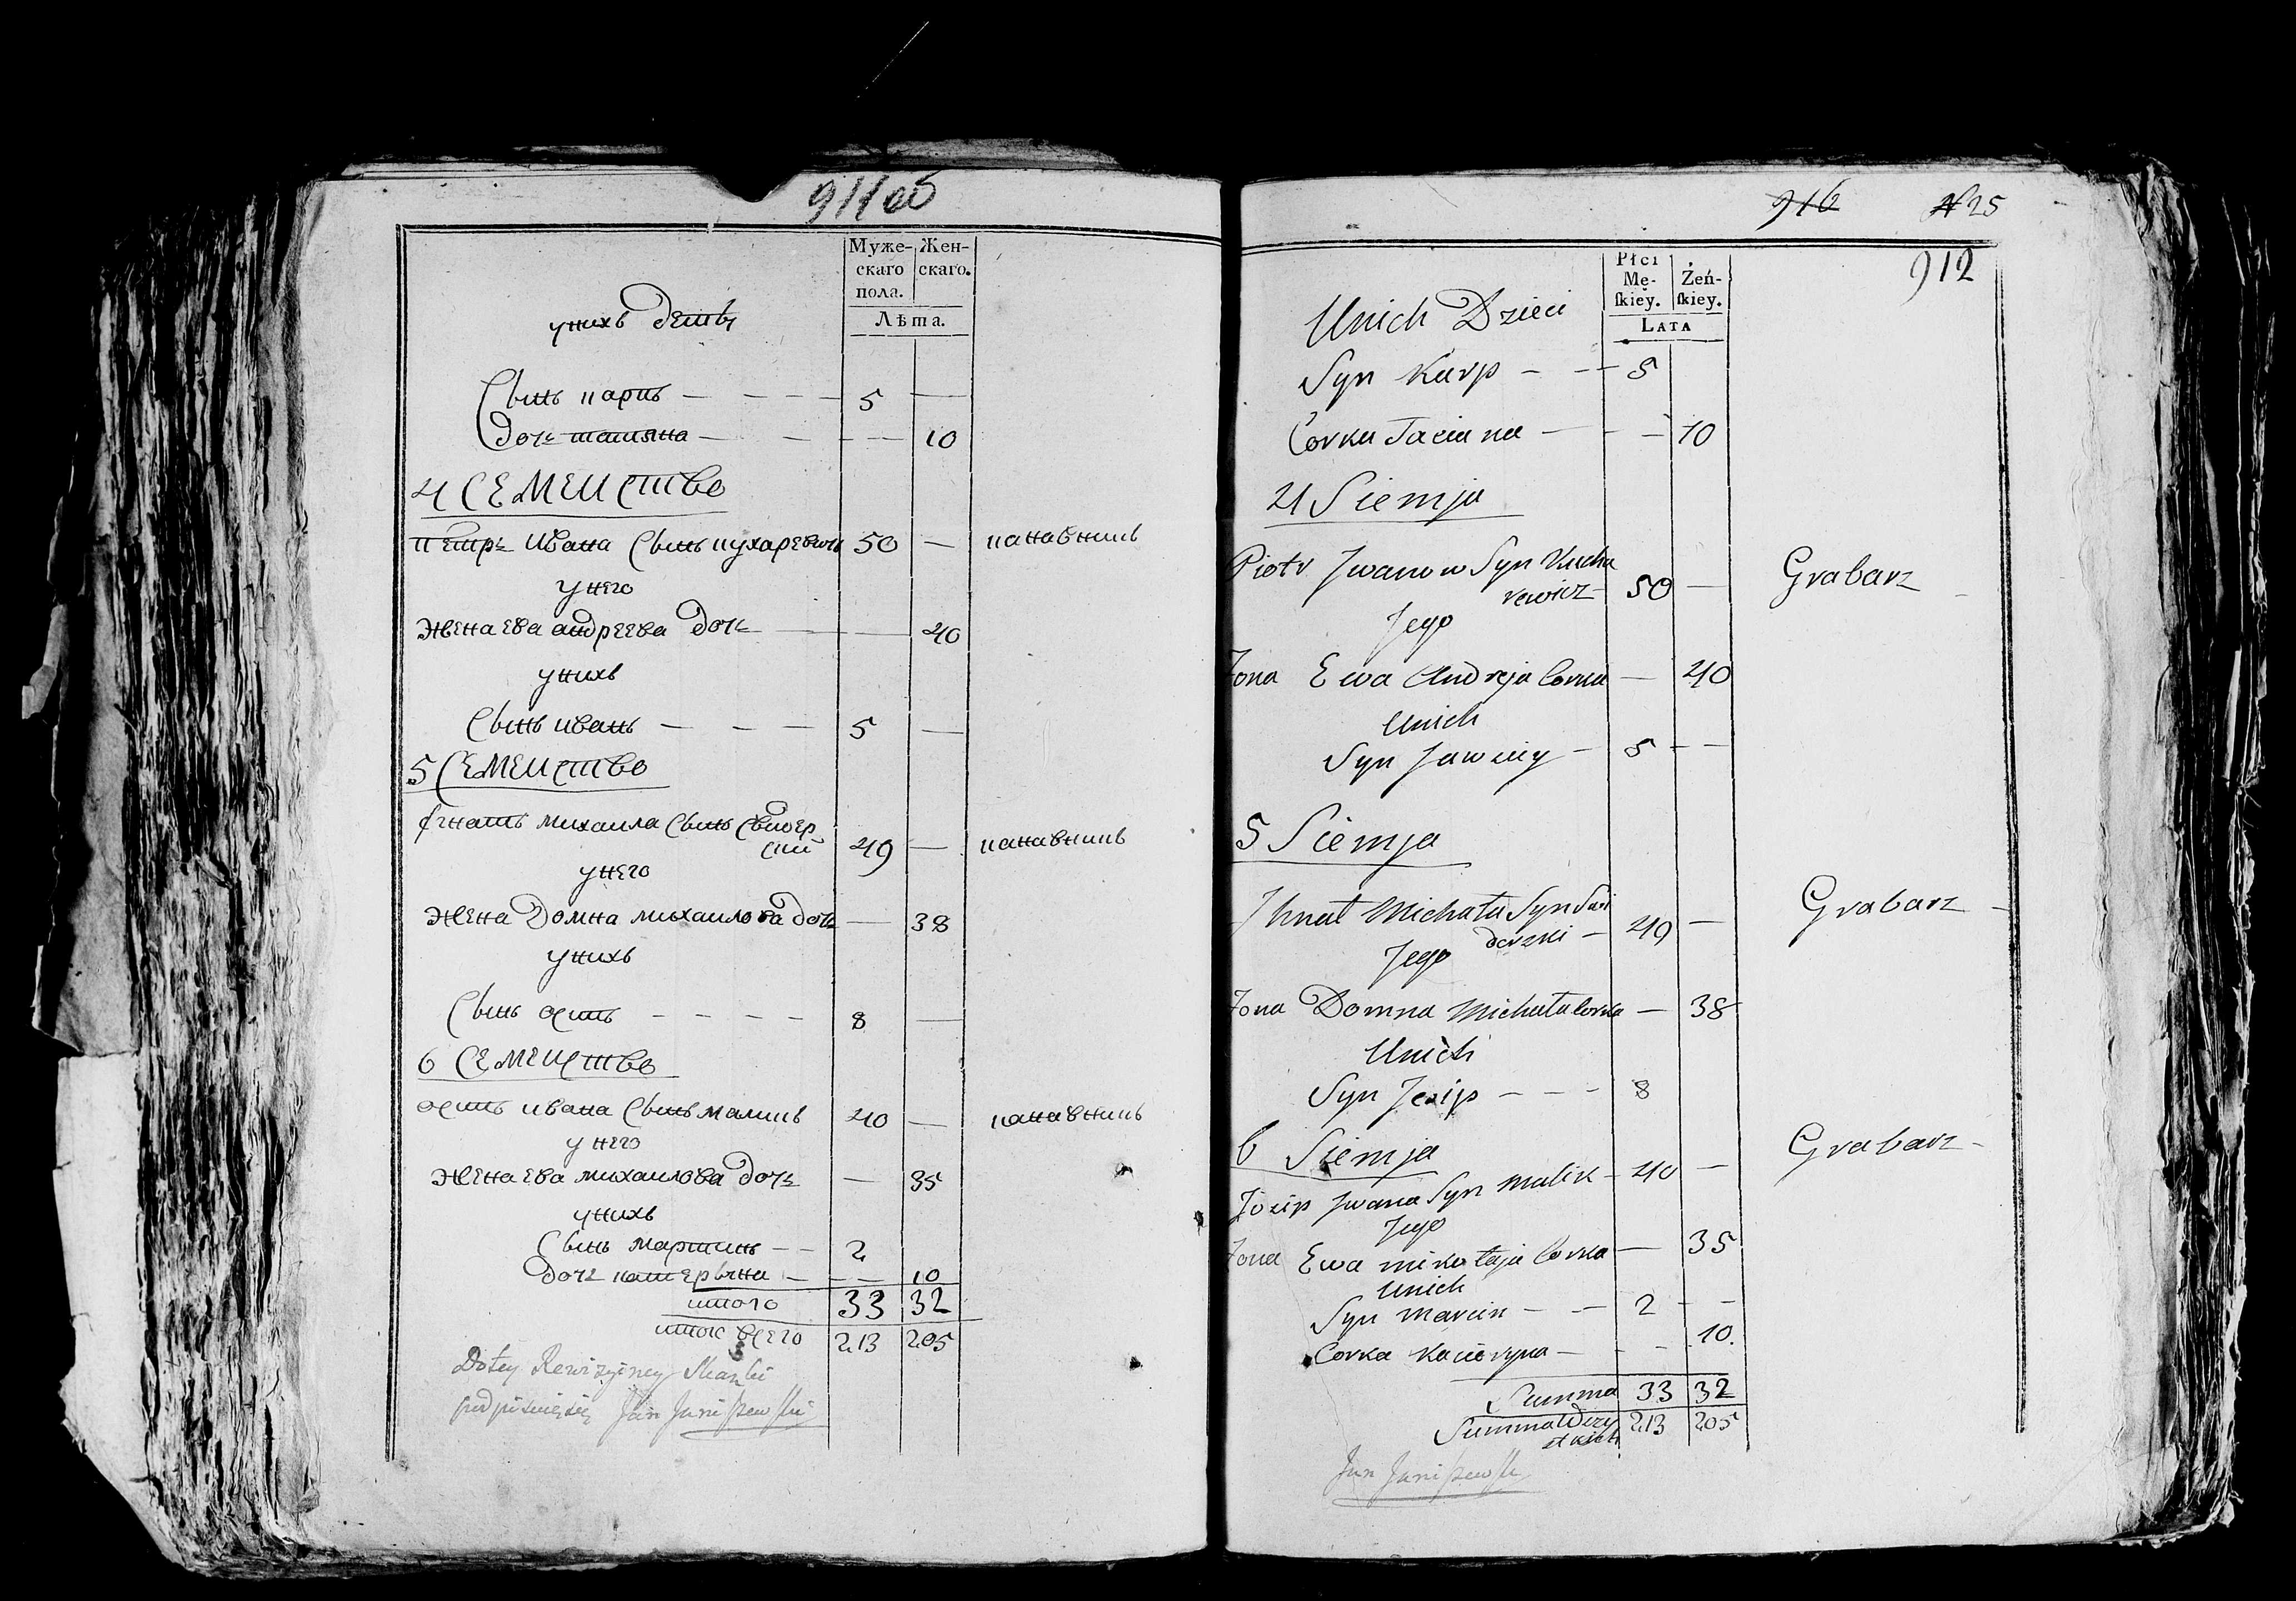 911 об
Муже-
скаго
пола.
Жен-
скаго.
Лѣта.
унихъ Дети
Сынъ карпъ — — — — 5 —
Дочь татьяна — — — — 10
4 СЕМЕИСТВО
петръ ивана Сынъ кухаревичъ 50 — канавникъ
унего
жена ева андреева Дочь — — 40
унихъ
Сынъ иванъ — — — 5 —
5 СЕМЕИСТВО
гнатъ михаила Сынъ Свидер
ски 49 — канавникъ
унего
жена Домна михаилова Дочь — 38
унихъ
Сынъ осипъ — — — — 8 —
6 СЕМЕИСТВО
осипъ ивана Сынъ маликъ 40 — канавникъ
унего
жена ева михаилова Дочь — 35
унихъ
Сынъ мартинъ — — 2
Дочь катерына — — — 10
итого 33 32
итого всего 213 205
Dotey Rewizyiney Skazki
podpisuię się Jan Juniszewski
916 N 25
912
Płci
Mę-
skiey.
Żeń-
skiey.
LATA
Unich Dzieci
Syn Karp — — 5
Corka Taciana — — — 10
4 Siemja
Piotr Jwanow Syn Kucha
rewicz 50 — Grabarz
Jego
Zona Ewa Andreja Corka — 40
Unich
Syn — 5 — —
5 Siemja
Jhnat Michała Syn Swi
derski — 49 — Grabarz
Jego
Zona Domna Michała Corka — 38
Unich
Syn Jozip — — — 8
6 Siemja
Jozip Jwana Syn Malik — 40 — Grabarz
Jego
Zona Ewa mikołaja Corka — 35
Unich
Syn Marcin — — 2 — —
Corka Kacieryna — — — 10.
Summa 33 32
Summa Wszy
stkich 213 205
Jan Juniszewski